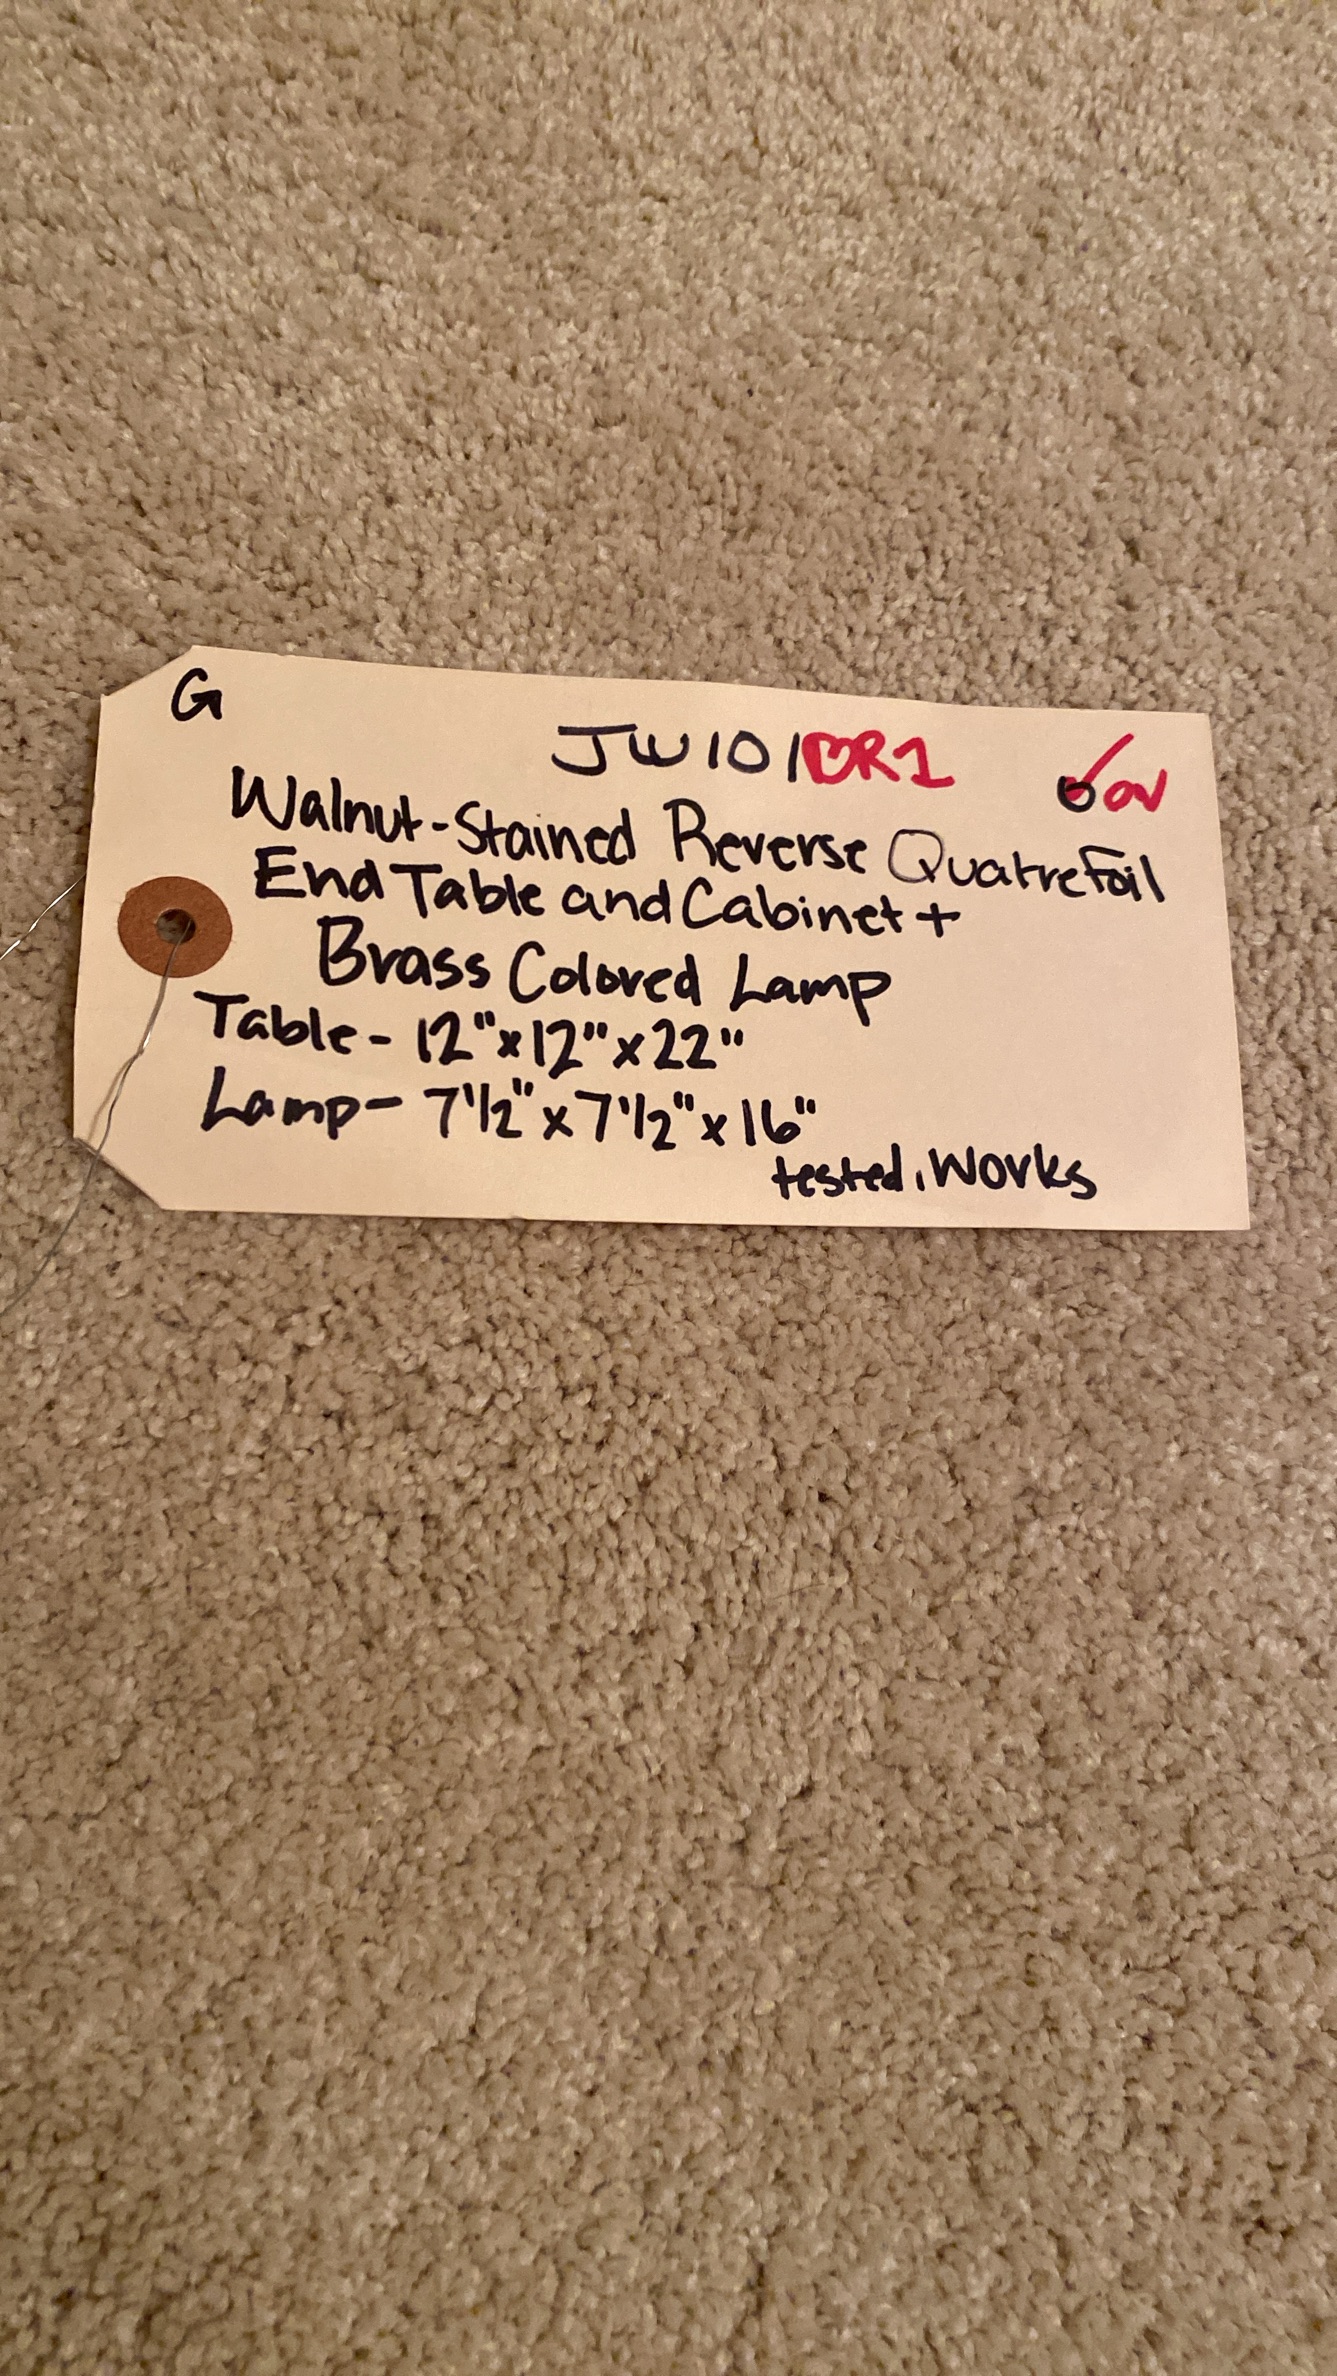 G
JW101BR1
Walnut-Stained Reverse Quatrefoil
End Table and Cabinet +
Brass Colored Lamp
Table - 12" x 12" x 22"
Lamp - 7 1/2" x 7 1/2" x 16"
tested, works